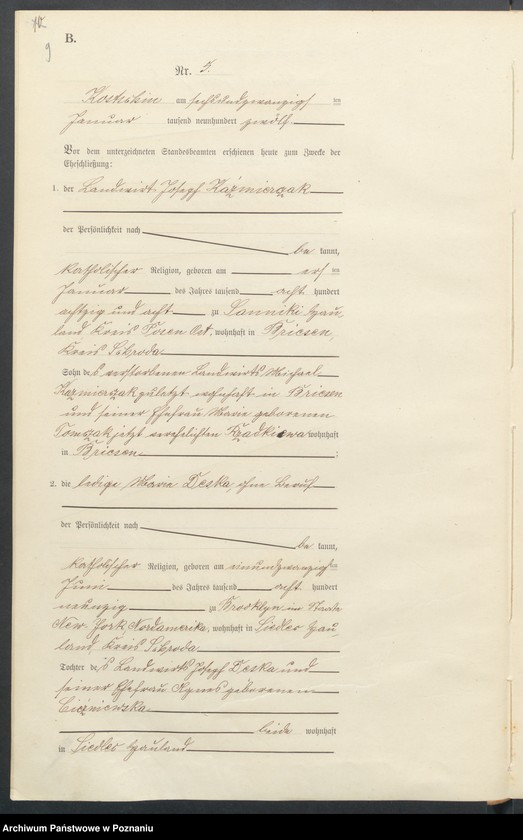 9
B.
Nr. 5.
Kostschin am sechsundzwanzigsten
Januar tausend neunhundert zwölf
Vor dem unterzeichneten Standesbeamten erschienen heute zum Zwecke der
Eheschließung:
1. der Landwirt Joseph Kaźmierczak
der Persönlichkeit nach
be kannt,
katholischer Religion, geboren am ersten
Januar des Jahres tausend acht hundert
achtzig und acht zu Hau-
land Kreis Posen Ost, wohnhaft in Briesen,
Kreis Schroda
Sohn des verstorbenen Landwirts Michael
Kaźmierczak zuletzt wohnhaft in Briesen
und seiner Ehefrau Marie geborenen
Tomczak jetzt verehelichten wohnhaft
in Briesen ;
2. die ledige Marie Deska, ohne Beruf
der Persönlichkeit nach
be kannt,
katholischer Religion, geboren am einundzwanzigsten
Juni des Jahres tausend acht hundert
neunzig zu Brooklyn im Staate
New-York Nordamerika, wohnhaft in Siedlec Hau-
land, Kreis Schroda
Tochter des Landwirts Joseph Deska und
seiner Ehefrau Agnes geborenen
beide wohnhaft
in Siedlec Hauland
Archiwum Państwowe w Poznaniu